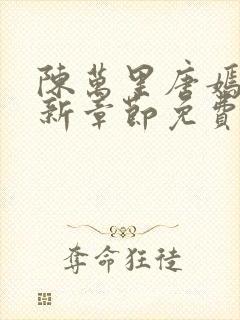 陳萬里唐嫣
新章節免費
奪命狂徒